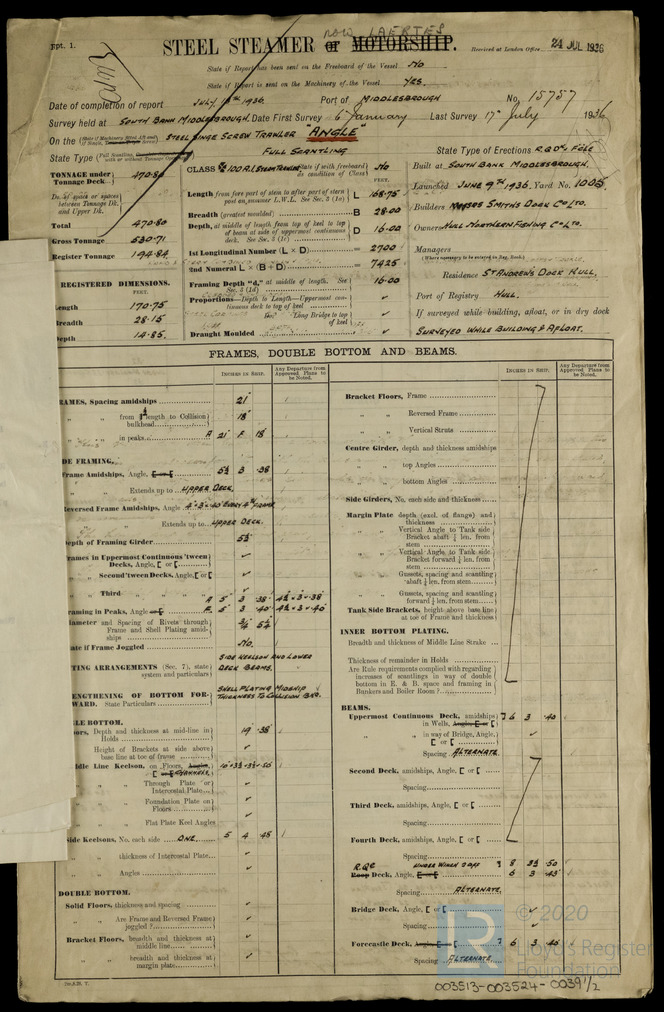 Rpt. 1.
NOW LAERTES
STEEL STEAMER or MOTORSHIP.
Received at London Office 24 JUL 1936
State if Report has been sent on the Freeboard of the Vessel No
State if Report is sent on the Machinery of the Vessel YES.
Date of completion of report JULY 18th 1936. Port of MIDDLESBROUGH No 15757
Survey held at SOUTH BANK MIDDLESBROUGH. Date First Survey 6th January Last Survey 17th July 1936
On the STEEL SINGE SCREW TRAWLER "ANGLE"
State Type FULL SCANTLING State Type of Erections R.QDK & FOLE
TONNAGE under Tonnage Deck 470.80
Do. of space or spaces between Tonnage Dk. and Upper Dk.
Total 470.80
Gross Tonnage 530.71
Register Tonnage 194.84
REGISTERED DIMENSIONS.
FEET.
Length 170.75
Breadth 28.15
Depth 14.85
CLASS 100 A.1. STEAM TRAWLER State if with freeboard as condition of Class No
FEET.
Length from fore part of stem to after part of stern post on summer L.W.L. See Sec. 3 (1a) L 168.75
Breadth (greatest moulded) B 28.00
Depth, at middle of length from top of keel to top of beam at side of uppermost continuous deck. See Sec. 3 (1c) D 16.00
1st Longitudinal Number (L × D) = 2700
2nd Numeral L × (B + D) = 7425
Framing Depth "d," at middle of length. See Sec. 3 (1d) 16.00
Proportions—Depth to Length—Uppermost continuous deck to top of keel
Do. Long Bridge to top of keel
Draught Moulded
Built at SOUTH BANK MIDDLESBROUGH.
Launched JUNE 9TH 1936. Yard No. 1005.
Builders SMITHS DOCK CO LTD.
Owners HULL NORTHERN FISHING CO LTD.
Managers
(Where necessary to be entered in Reg. Book)
Residence ST ANDREWS DOCK HULL.
Port of Registry HULL.
If surveyed while building, afloat, or in dry dock
SURVEYED WHILE BUILDING & AFLOAT.
FRAMES, DOUBLE BOTTOM AND BEAMS.
INCHES IN SHIP. Any Departure from Approved Plans to be Noted.
INCHES IN SHIP. Any Departure from Approved Plans to be Noted.
FRAMES, Spacing amidships 21"
from length to Collision bulkhead 18"
in peaks A 21" F. 18"
SIDE FRAMING.
Frame Amidships, Angle, 5½ 3 .38
Extends up to UPPER DECK.
Reversed Frame Amidships, Angle 4"×3"×.40 EVERY 4TH FRAME
Extends up to UPPER DECK.
Depth of Framing Girder 5½
Frames in Uppermost Continuous 'tween Decks, Angle, [ or [
Second 'tween Decks, Angle, [ or [
Third
A 5" 3 .38" 4½×3×.38
Framing in Peaks, Angle F. 5" 3 .40" 4½×3×.40
Diameter and Spacing of Rivets through Frame and Shell Plating amidships ¾" 5¼
State if Frame Joggled No.
SIDE KEELSON AND LOWER DECK BEAMS.
(Sec. 7), state system and particulars
STRENGTHENING OF BOTTOM FORWARD. State Particulars SHELL PLATING MIDSHIP THICKNESS TO COLLISION BHD.
Floors, Depth and thickness at mid-line in Holds 19" .38"
Height of Brackets at side above base line at toe of frame
Middle Line Keelson, on Floors,
Through Plate or Intercostal Plate
Foundation Plate on Floors
Flat Plate Keel Angles
Side Keelsons, No. each side ONE. 5 4 .48
thickness of Intercostal Plate
Angles
DOUBLE BOTTOM.
Solid Floors, thickness and spacing
Are Frame and Reversed Frame joggled?
Bracket Floors, breadth and thickness at middle line
breadth and thickness at margin plate
Bracket Floors, Frame
Reversed Frame
Vertical Struts
Centre Girder, depth and thickness amidships
top Angles
bottom Angles
Side Girders, No. each side and thickness
Margin Plate depth (excl. of flange) and thickness
Vertical Angle to Tank side Bracket abaft ¼ len. from stem
Vertical Angle to Tank side Bracket forward ¼ len. from stem
Gussets, spacing and scantling abaft ¼ len. from stem
Gussets, spacing and scantling forward ¼ len. from stem
Tank Side Brackets, height above base line at toe of Frame and thickness
INNER BOTTOM PLATING.
Breadth and thickness of Middle Line Strake
Thickness of remainder in Holds
Are Rule requirements complied with regarding increases of scantlings in way of double bottom in E. & B. space and framing in Bunkers and Boiler Room?
BEAMS.
Uppermost Continuous Deck, amidships in Wells, Angle, [ or [ 6 3 .40
in way of Bridge, Angle, [ or [
Spacing ALTERNATE.
Second Deck, amidships, Angle, [ or [
Spacing
Third Deck, amidships, Angle, [ or [
Spacing
Fourth Deck, amidships, Angle, [ or [
Spacing
R.QD UNDER WINCH 8 3½ .50
Poop Deck, Angle, 6 3 .45
Spacing ALTERNATE.
Bridge Deck, Angle, [ or [
Spacing
Forecastle Deck, Angle, [ or [ 6 3 .40
Spacing ALTERNATE.
© 2020
LR
Lloyd's Register
Foundation
003513-003524-0039 1/2